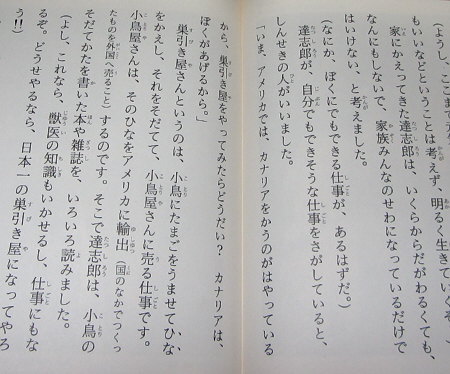 （よし、ここまで
もいいなどということは考えず、明るく生きていくぞ。
家にかえってきた達志郎は、いくらからだがわるくても、
なんにもしないで、家族みんなのせわになっているだけで
はいけない、と考えました。
（なにか、ぼくにでもできる仕事が、あるはずだ。）
達志郎が、自分でもできそうな仕事をさがしていると、
しんせきの人がいいました。
「いま、アメリカでは、カナリアをかうのがはやっている
から、巣引き屋をやってみたらどうだい？　カナリアは、
ぼくがあげるから。」
巣引き屋さんというのは、小鳥にたまごをうませてひな
をかえし、それをそだてて、小鳥屋さんに売る仕事です。
小鳥屋さんは、そのひなをアメリカに輸出（国のなかでつくっ
たものを外国へ売ること）するのです。そこで達志郎は、小鳥の
そだてかたを書いた本や雑誌を、いろいろ読みました。
（よし、これなら、獣医の知識もいかせるし、仕事にもな
るぞ。どうせやるなら、日本一の巣引き屋になってやろ
う!!）